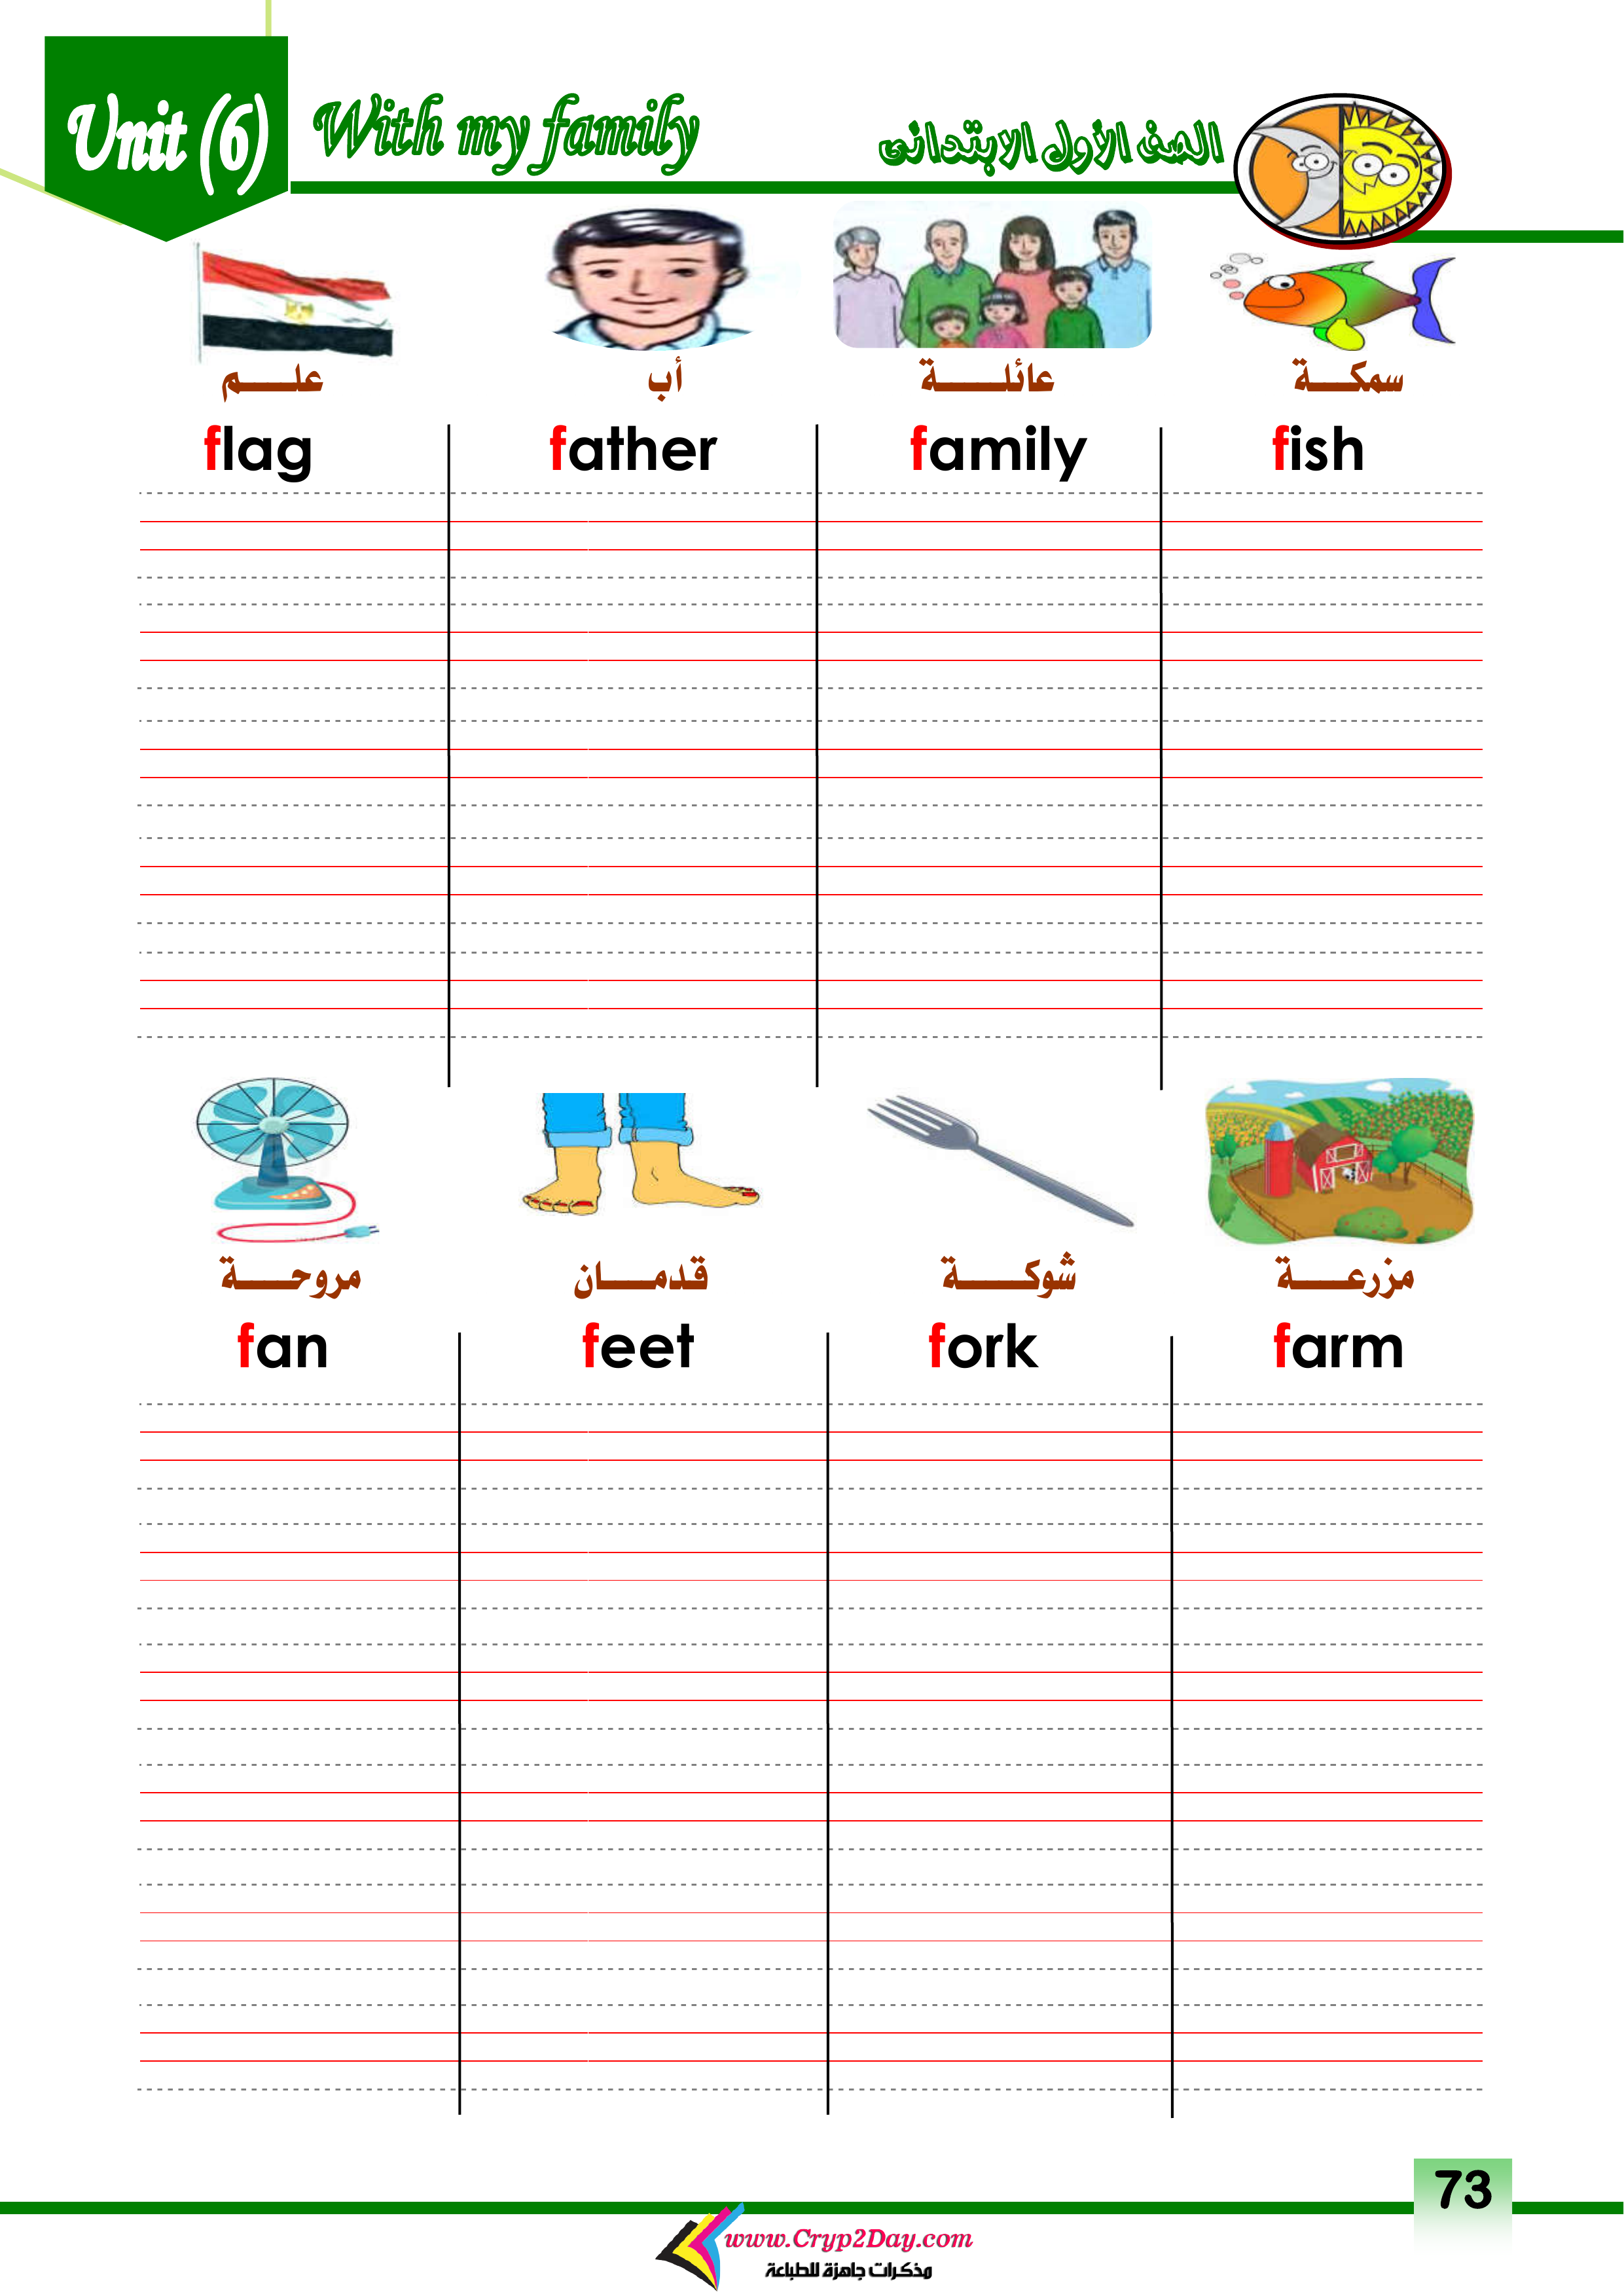 Unit (6) With my family الصف الأول الابتدائى
علـــم أب عائلـــة سمكـــة
flag father family fish
مروحـــة قدمـــان شوكـــة مزرعـــة
fan feet fork farm
73
www.Cryp2Day.com
مذكرات جاهزة للطباعة